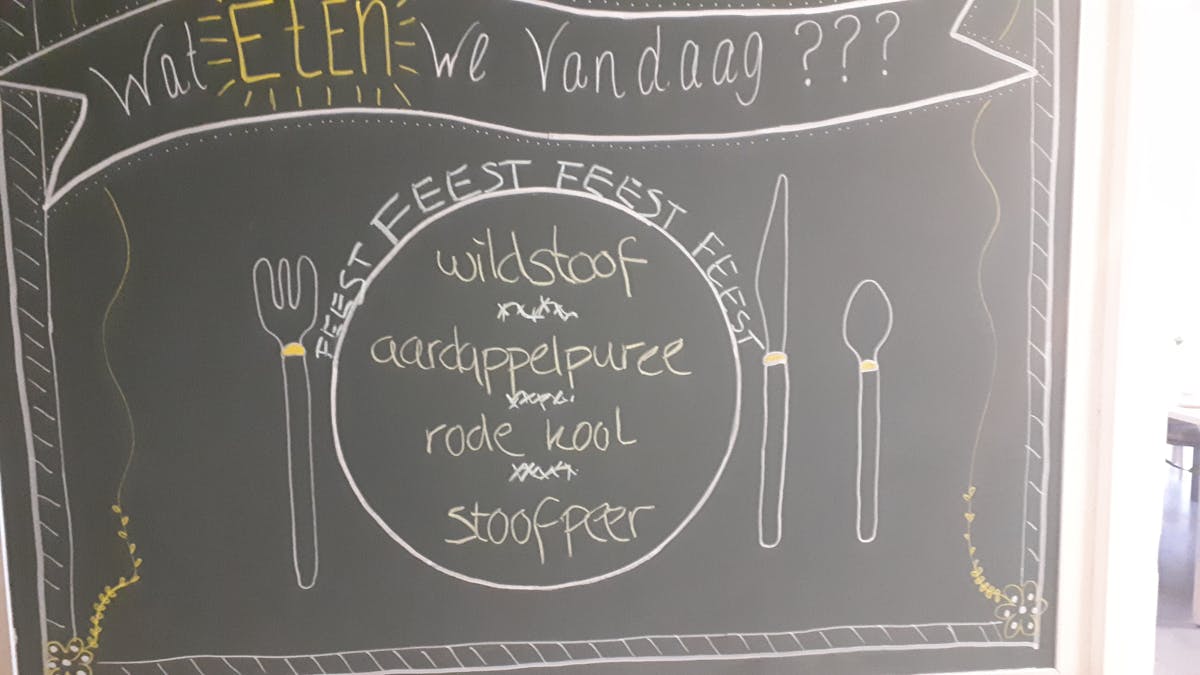 Wat EtEn we Vandaag ???
FEEST FEEST FEEST FEEST
wildstoof
aardappelpuree
rode kool
stoofpeer